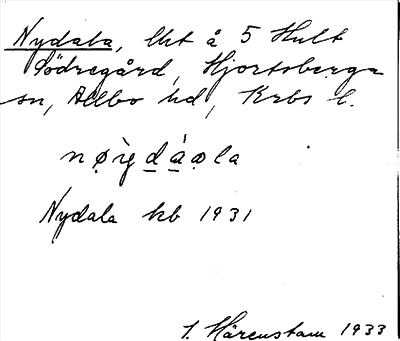 Nydala, lht å 5 Hult
Södregård, Hjortsberga
sn, Allbo hd, Krbs l.
nøìgdáꝏla
Nydala kb 1931
S. Härenstam 1933